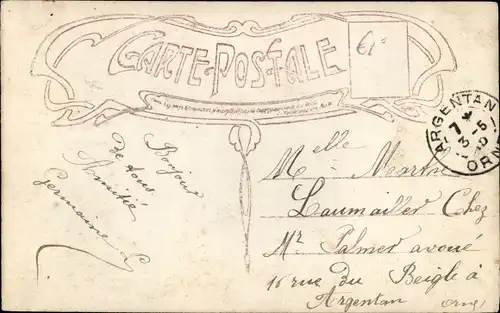 CARTE-POSTALE
€1=
ARGENTAN
7 *
3-5
ORNE
Bonjour
de tous
Amitié
Germaine L
Melle Marthe
Laumailler Chez
Mr Palmer avoué
16 rue du Beigle à
Argentan
Orne